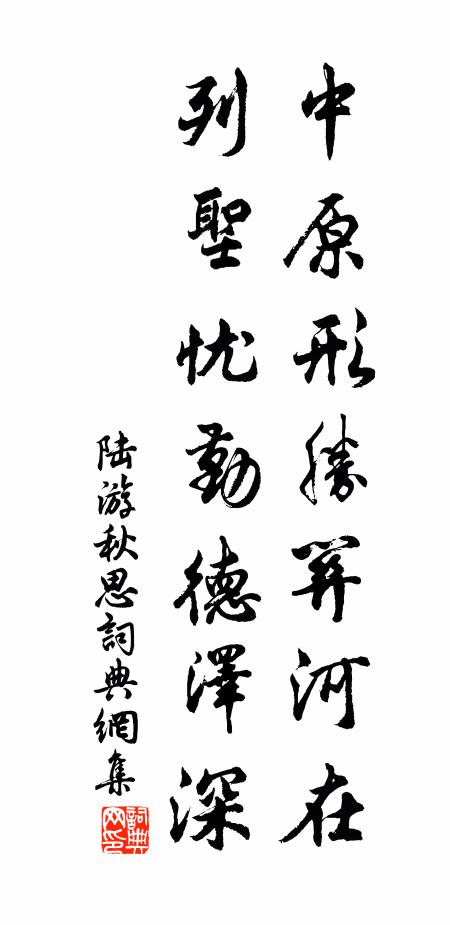 中原形勝關河在
列聖忧勤德澤深
陆游秋思詞典網集
詞典网印